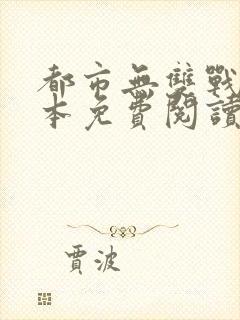 都市無雙戰
本免費閱讀
賈波